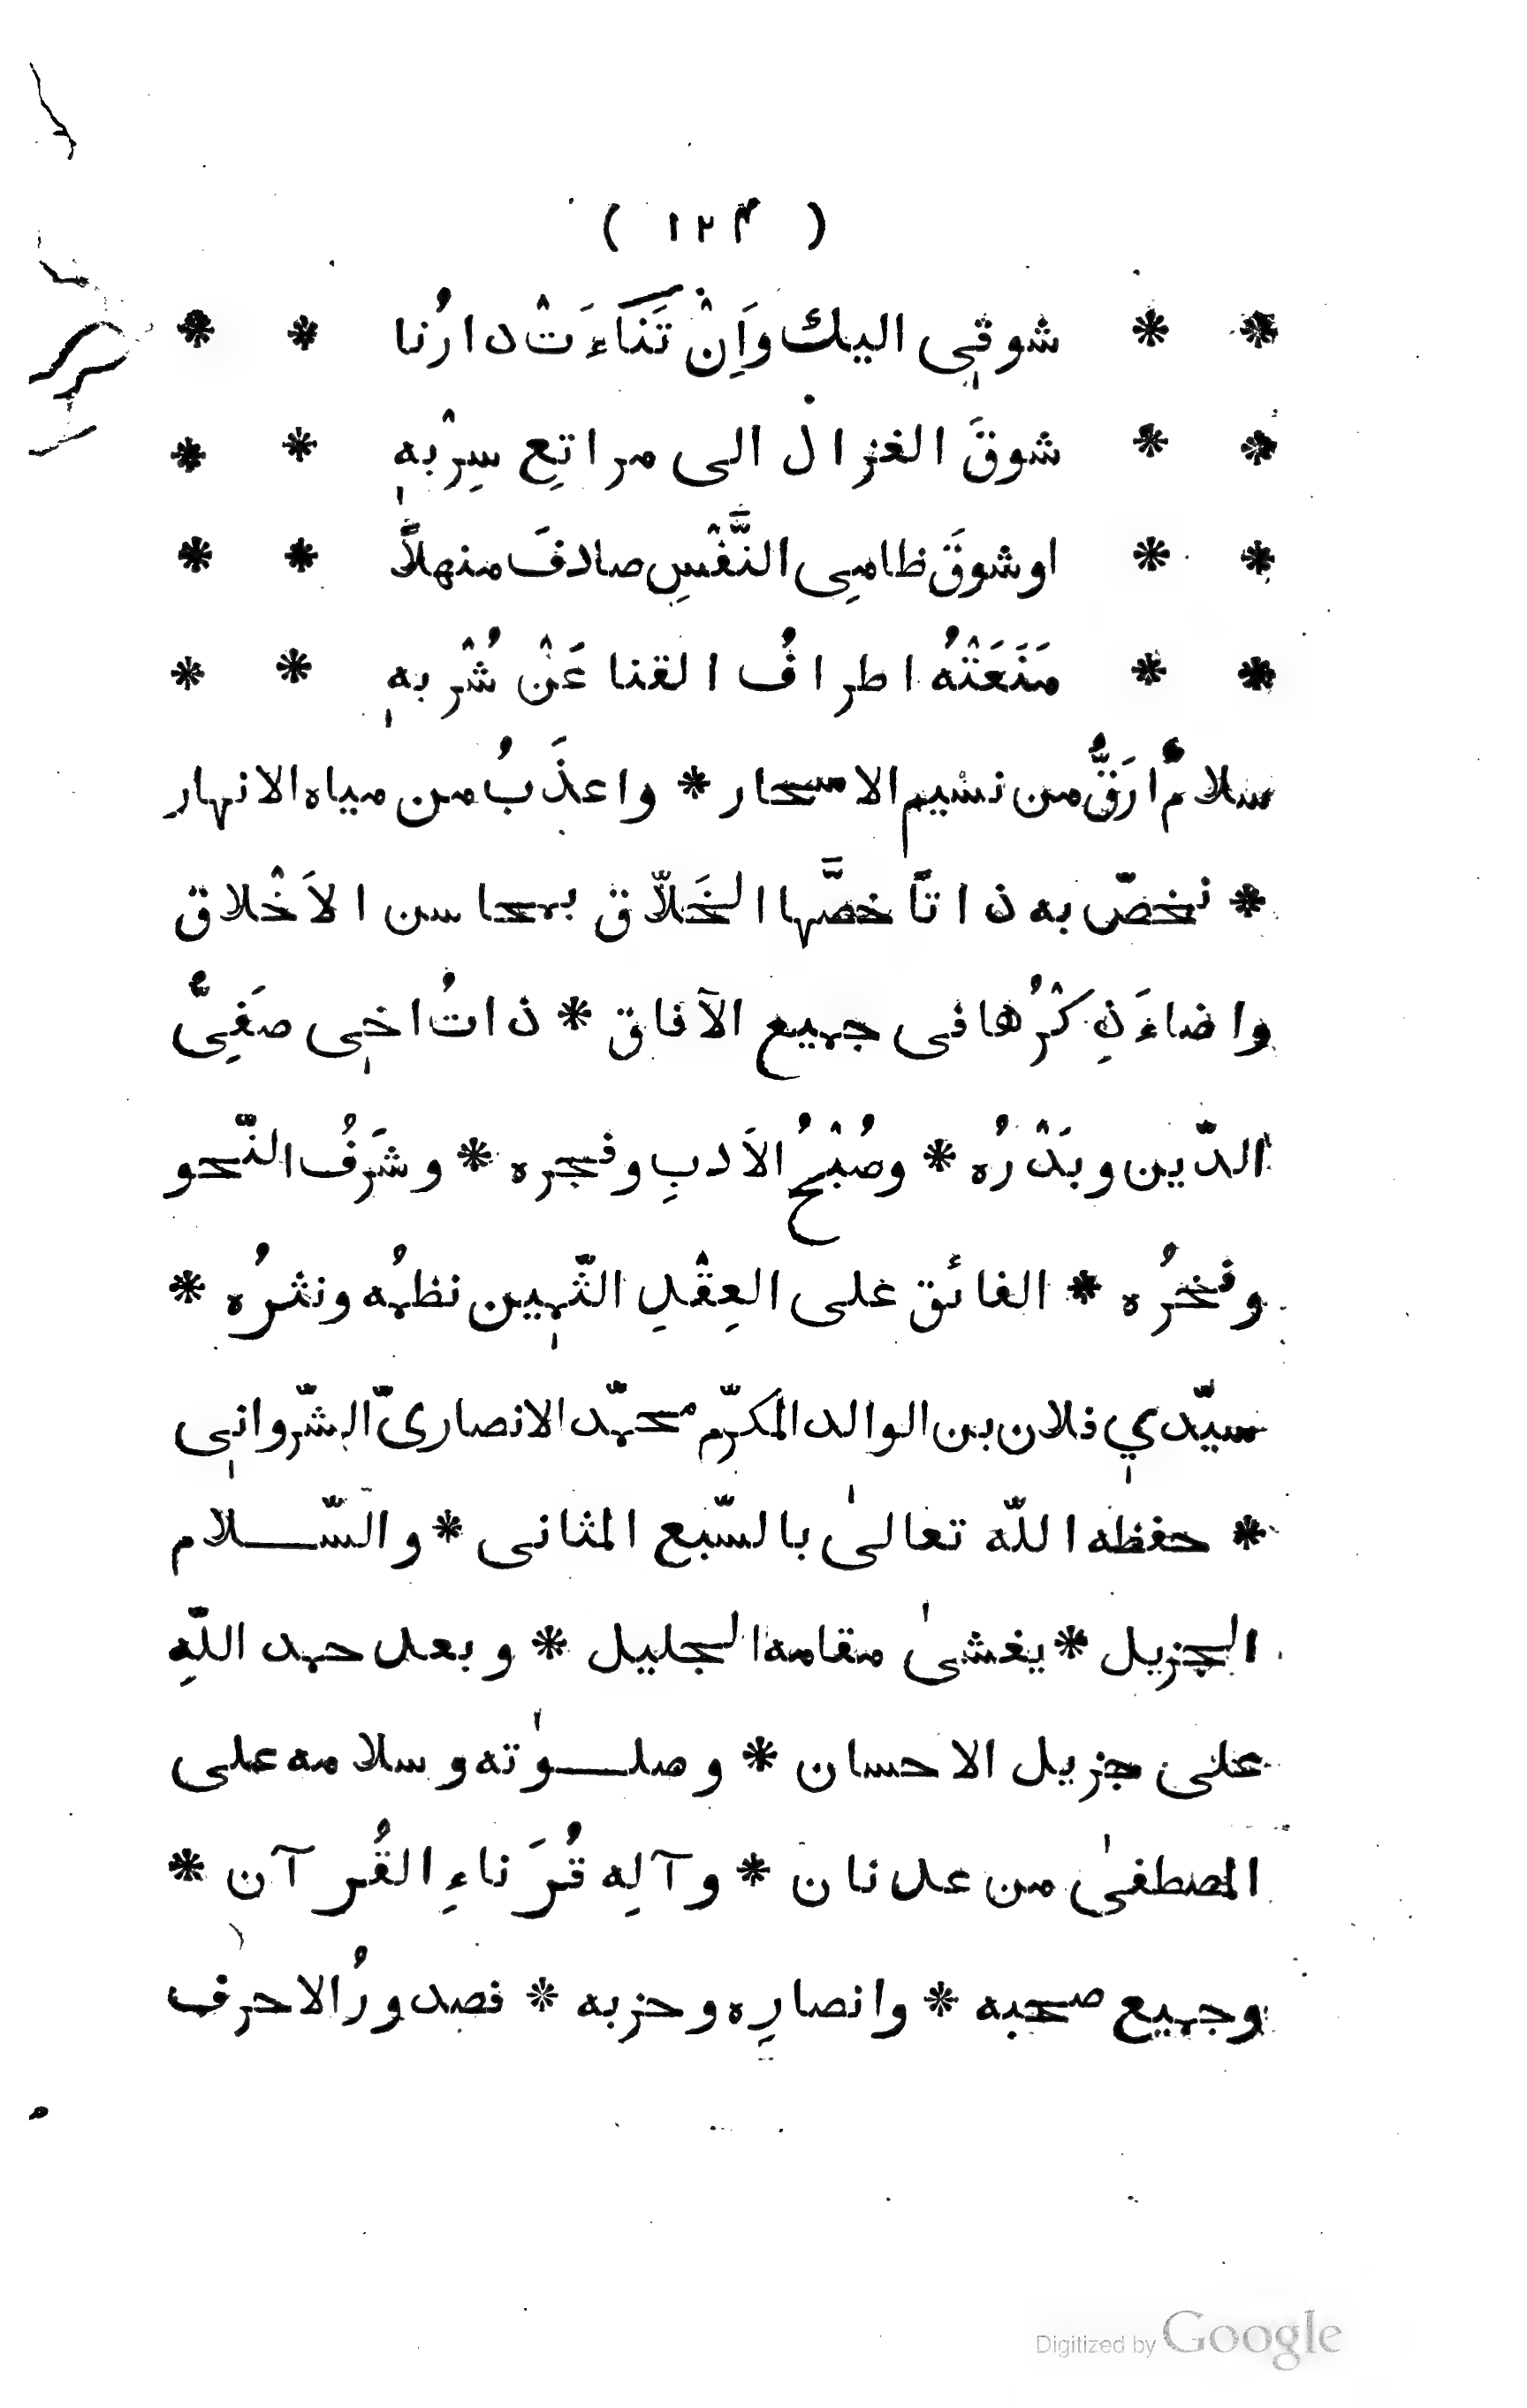 ( ١٢٤ )
* * شوقي اليك وَاِنْ تَنَاءَتْ دارُنا * *
* * شوقَ الغزال الى مراتعِ سِرْبهِ * *
* * او شوقَ ظامىِ النَّفْسِ صادفَ منهلاً * *
* * مَنَعَتْهُ اطرافُ القنا عَنْ شُرْبهِ * *
سلامٌ ارَقُّ من نسْيم الاسحار * واعذَبُ من مياه الانهار
* نخصّ به ذاتًا خصَّها الخَلاّق بمحاسن الاَخْلاق
واضاءَ ذِكْرُها فى جميع الآفاق * ذاتُ اخي صَفِىُّ
الدّين وبَدْرُه * وصُبْحُ الاَدبِ وفجره * وشَرَفُ النّحو
وفخرُه * الفائق على العِقْدِ الثّمين نظمُه ونثرُه *
سيّدي فلان بن الوالد المكرّم محمّد الانصارىّ الشّرواني
* حفظه الله تعالىٰ بالسّبع المثانى * والسّلام
الجزيل * يغشىٰ مقامه الجليل * وبعد حمد اللّهِ
على جزيل الاحسان * وصلوٰته وسلامه على
المصطفىٰ من عدنان * وآلِه قُرَناءِ القُرآن *
وجميع صحبه * وانصارِه وحزبه * فصدورُ الاحرف
Digitized by Google